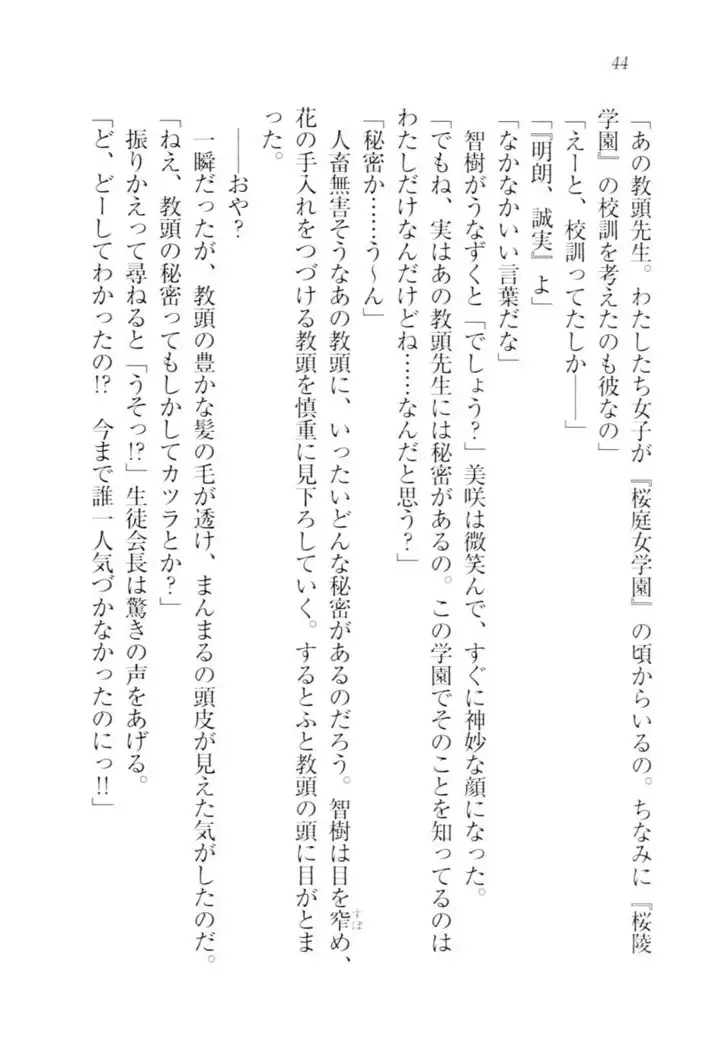 44
「あの教頭先生。わたしたち女子が『桜庭女学園』の頃からいるの。ちなみに『桜陵
学園』の校訓を考えたのも彼なの」
「えーと、校訓ってたしか――」
「『明朗、誠実』よ」
「なかなかいい言葉だな」
　智樹がうなずくと「でしょう？」美咲は微笑んで、すぐに神妙な顔になった。
「でもね、実はあの教頭先生には秘密があるの。この学園でそのことを知ってるのは
わたしだけなんだけどね……なんだと思う？」
「秘密か……う〜ん」
　人畜無害そうなあの教頭に、いったいどんな秘密があるのだろう。智樹は目を窄め、
すぼ
花の手入れをつづける教頭を慎重に見下ろしていく。するとふと教頭の頭に目がとま
った。
　――おや？
　一瞬だったが、教頭の豊かな髪の毛が透け、まんまるの頭皮が見えた気がしたのだ。
「ねえ、教頭の秘密ってもしかしてカツラとか？」
　振りかえって尋ねると「うそっ!?」生徒会長は驚きの声をあげる。
「ど、どーしてわかったの!?　今まで誰一人気づかなかったのにっ!!」